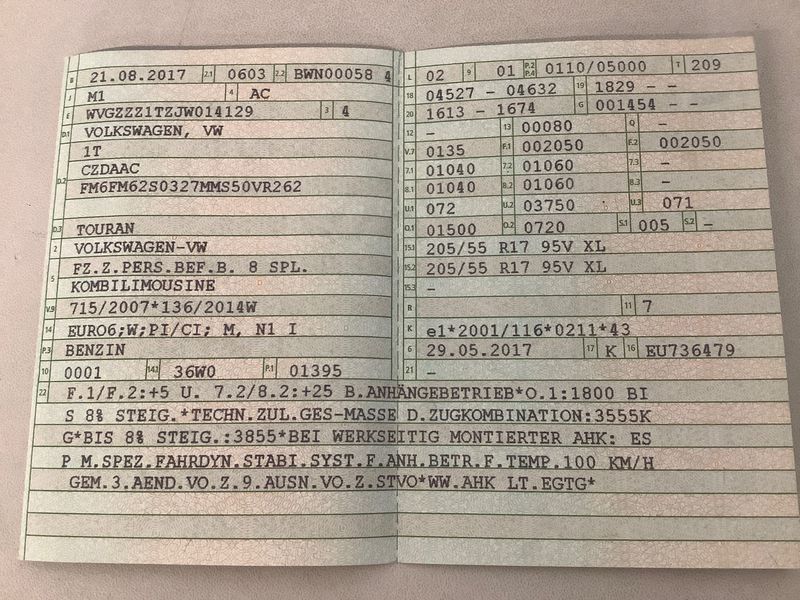 B 21.08.2017 2.1 0603 2.2 BWN00058 4
J M1 4 AC
E WVGZZZ1TZJW014129 3 4
D.1 VOLKSWAGEN, VW
1T
D.2 CZDAAC
FM6FM62S0327MMS50VR262
D.3 TOURAN
2 VOLKSWAGEN-VW
5 FZ.Z.PERS.BEF.B. 8 SPL.
KOMBILIMOUSINE
V.9 715/2007*136/2014W
14 EURO6;W;PI/CI; M, N1 I
P.3 BENZIN
10 0001 14.1 36W0 P.1 01395
L 02 9 01 P.2 P.4 0110/05000 T 209
18 04527 - 04632 19 1829 - -
20 1613 - 1674 G 001454 - -
12 - 13 00080 Q -
V.7 0135 F.1 002050 F.2 002050
7.1 01040 7.2 01060 7.3 -
8.1 01040 8.2 01060 8.3 -
U.1 072 U.2 03750 U.3 071
O.1 01500 O.2 0720 S.1 005 S.2 -
15.1 205/55 R17 95V XL
15.2 205/55 R17 95V XL
15.3 -
R 11 7
K e1*2001/116*0211*43
6 29.05.2017 17 K 16 EU736479
21 -
22 F.1/F.2:+5 U. 7.2/8.2:+25 B.ANHÄNGEBETRIEB*O.1:1800 BI
S 8% STEIG.*TECHN.ZUL.GES-MASSE D.ZUGKOMBINATION:3555K
G*BIS 8% STEIG.:3855*BEI WERKSEITIG MONTIERTER AHK: ES
P M.SPEZ.FAHRDYN.STABI.SYST.F.ANH.BETR.F.TEMP.100 KM/H
GEM.3.AEND.VO.Z.9.AUSN.VO.Z.STVO*WW.AHK LT.EGTG*